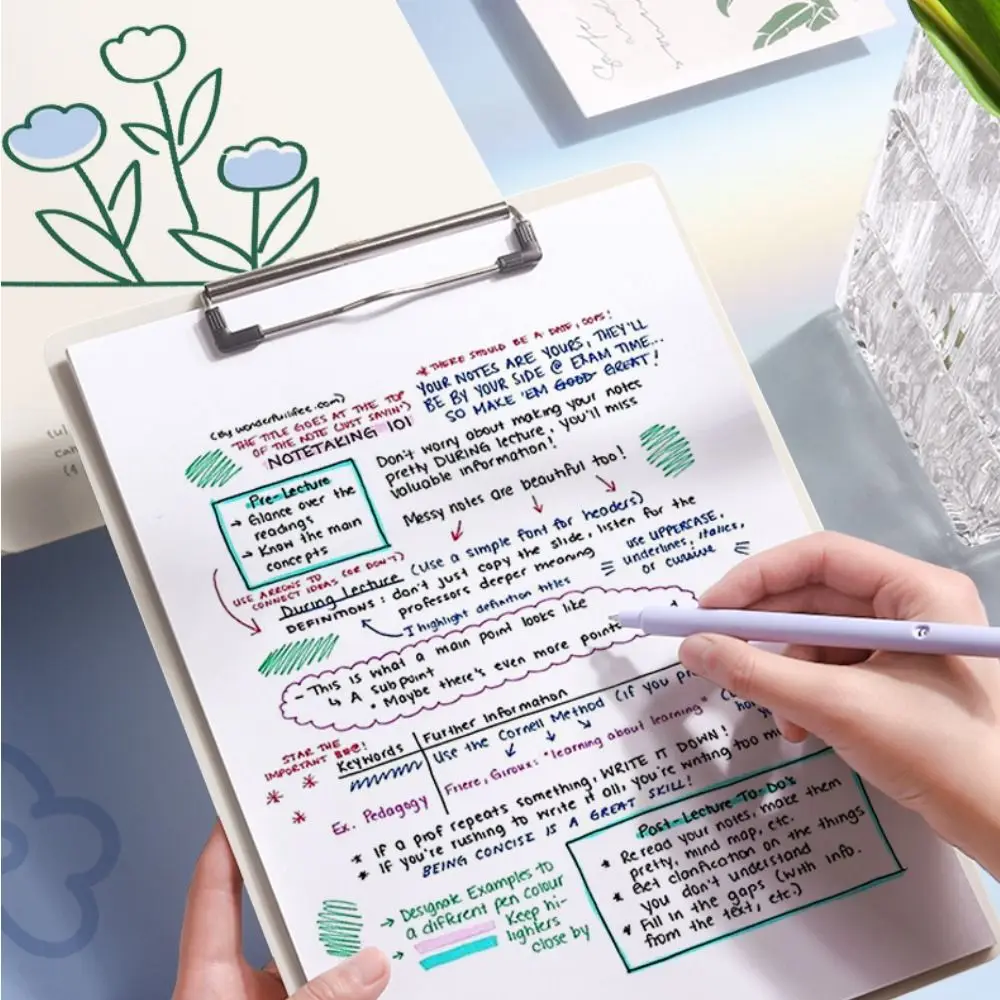 * THERE SHOULD BE A DATE, OOPS!
YOUR NOTES ARE YOURS, THEY'LL
BE BY YOUR SIDE @ EXAM TIME...
SO MAKE 'EM GOOD GREAT!
(By wonderfulifee.com)
THE TITLE GOES AT THE TOP
OF THE NOTE (JUST SAYIN')
NOTETAKING 101
Don't worry about making your notes
pretty DURING lecture, you'll miss
valuable information!
Messy notes are beautiful too!
Pre-Lecture
→ Glance over the
readings
→ Know the main
concepts
USE ARROWS TO
CONNECT IDEAS (OR DON'T)
During Lecture (use a simple font for headers)
DEFINITIONS: don't just copy the slide, listen for the
professors deeper meaning
I highlight definition titles
use UPPERCASE,
underlines, italics,
or cursive
- This is what a main point looks like
↳ A subpoint
• Maybe there's even more points
STAR THE
IMPORTANT
Keywords
Further Information
Use the Cornell Method (if you
Ex. Pedagogy
Friere, Giroux: "learning about learning"
* If a prof repeats something, WRITE IT DOWN!
* If you're rushing to write it all, you're writing too
BEING CONCISE IS A GREAT SKILL!
→ Designate Examples to
a different pen colour
→ Keep hi-
lighters
close by
Post-Lecture To-Do's
* Reread your notes, make them
pretty, mind map, etc.
* Get clarification on the things
you don't understand
* Fill in the gaps (with info.
from the text, etc.)